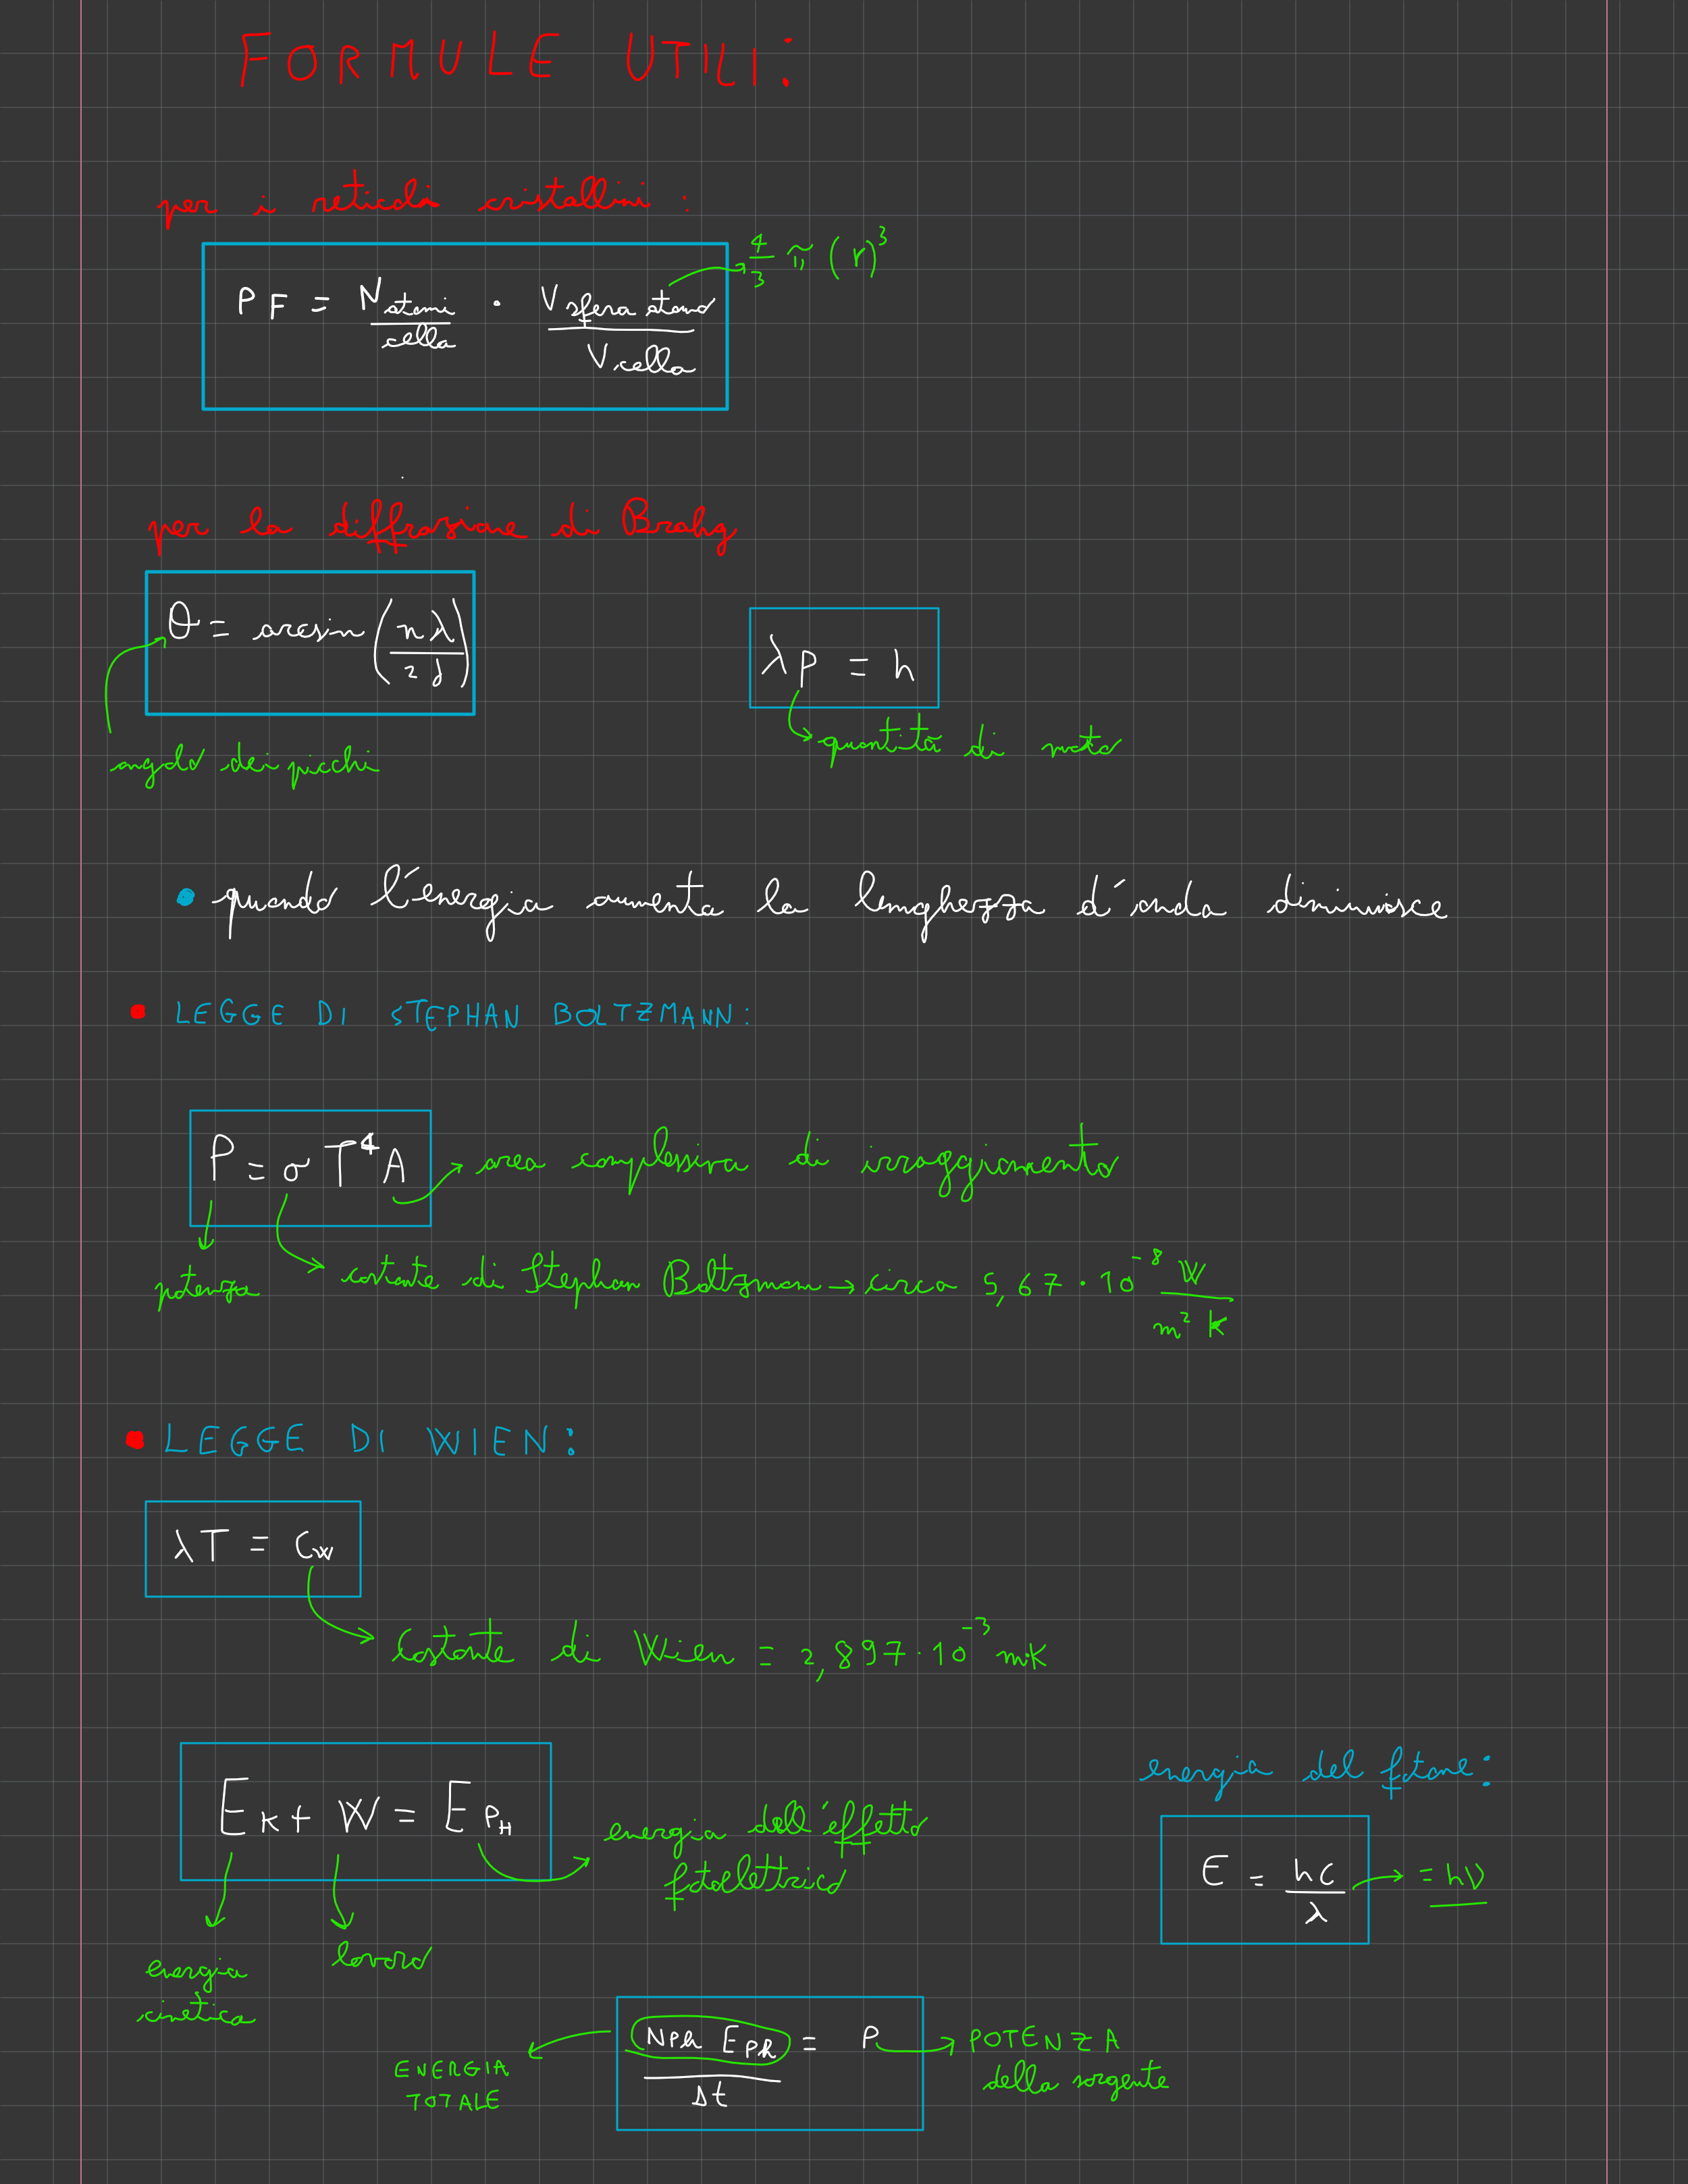 FORMULE UTILI:
per i reticoli cristallini:
PF = N atomi/cella · V sfera atomo / V cella → 4/3 π (r)³
per la diffrazione di Brahg
θ = arcsin (nλ / 2d)
λp = h
angolo dei picchi
quantità di moto
• quando l'energia aumenta la lungherzza d'onda diminuisce
• LEGGE DI STEPHAN BOLTZMANN:
P = σ T⁴ A → area complessiva di irraggiamento
potenza
costante di Stephan Boltzmann → circa 5,67 · 10⁻⁸ W / m² K
• LEGGE DI WIEN:
λT = Cw
Costante di Wien = 2,897 · 10⁻³ m·K
energia del fotone:
Ek + W = E PH
energia dell'effetto
fotoelettrico
E = hc / λ → = hν
energia
cinetica
lavoro
Nph Eph / Δt = P → POTENZA
della sorgente
ENERGIA
TOTALE